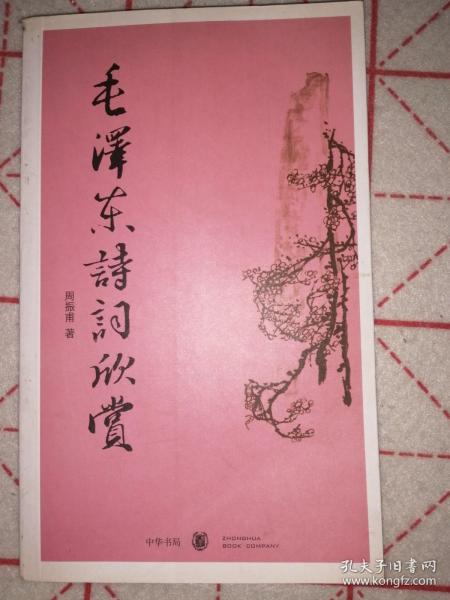 毛澤东詩詞欣賞
周振甫 著
中华书局
ZHONGHUA
BOOK COMPANY
孔夫子旧书网
www.kongfz.com